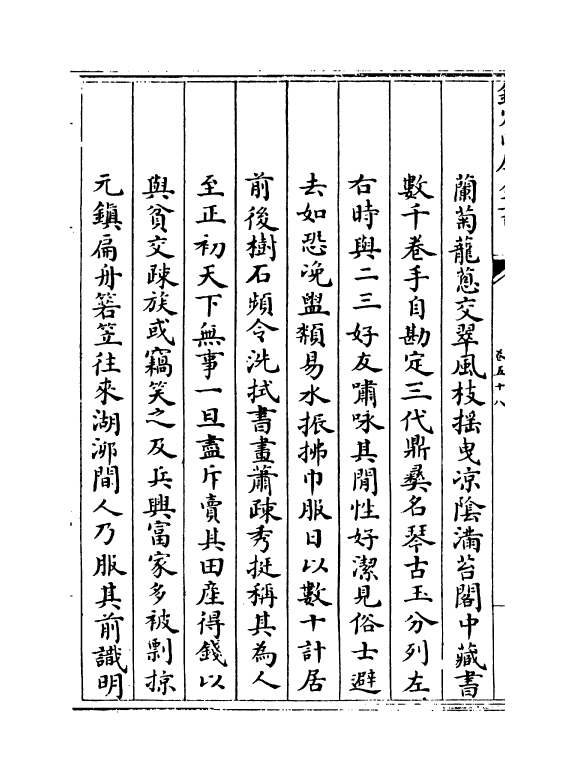 蘭菊蘢蔥交翠風枝揺曳凉隂滿苔閣中藏書
數千卷手自勘定三代鼎彝名琴古玉分列左
右時與二三好友嘯咏其閒性好潔見俗士避
去如恐凂盥頮易水振拂巾服日以數十計居
前後樹石頻令洗拭書畫蕭疎秀挺稱其為人
至正初天下無事一旦盡斥賣其田産得錢以
與貧交疎族或竊笑之及兵興富家多被剽掠
元鎮扁舟箬笠往來湖泖間人乃服其前識明
卷五十八